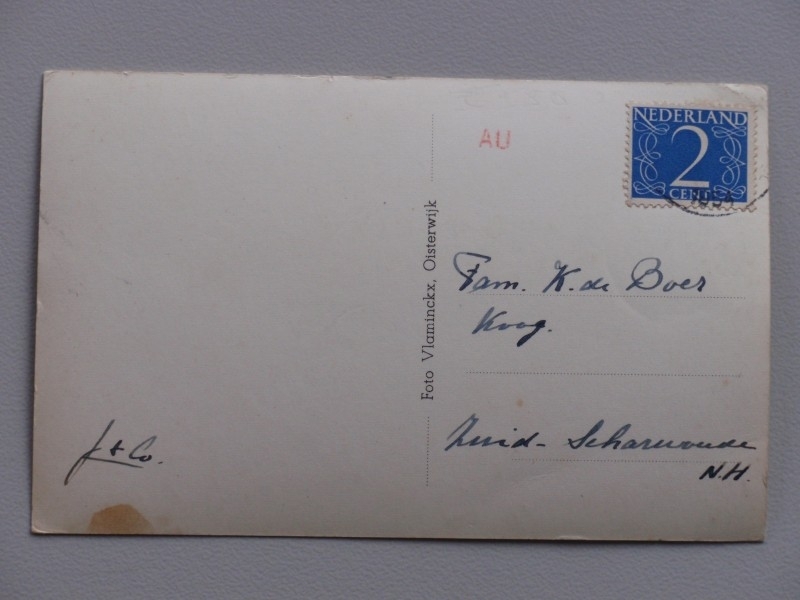 AU
NEDERLAND
2
CENT
Foto Vlaminckx, Oisterwijk
Fam. K. de Boer
Koog.
Zuid-Scharwoude
N.H.
J & Co.